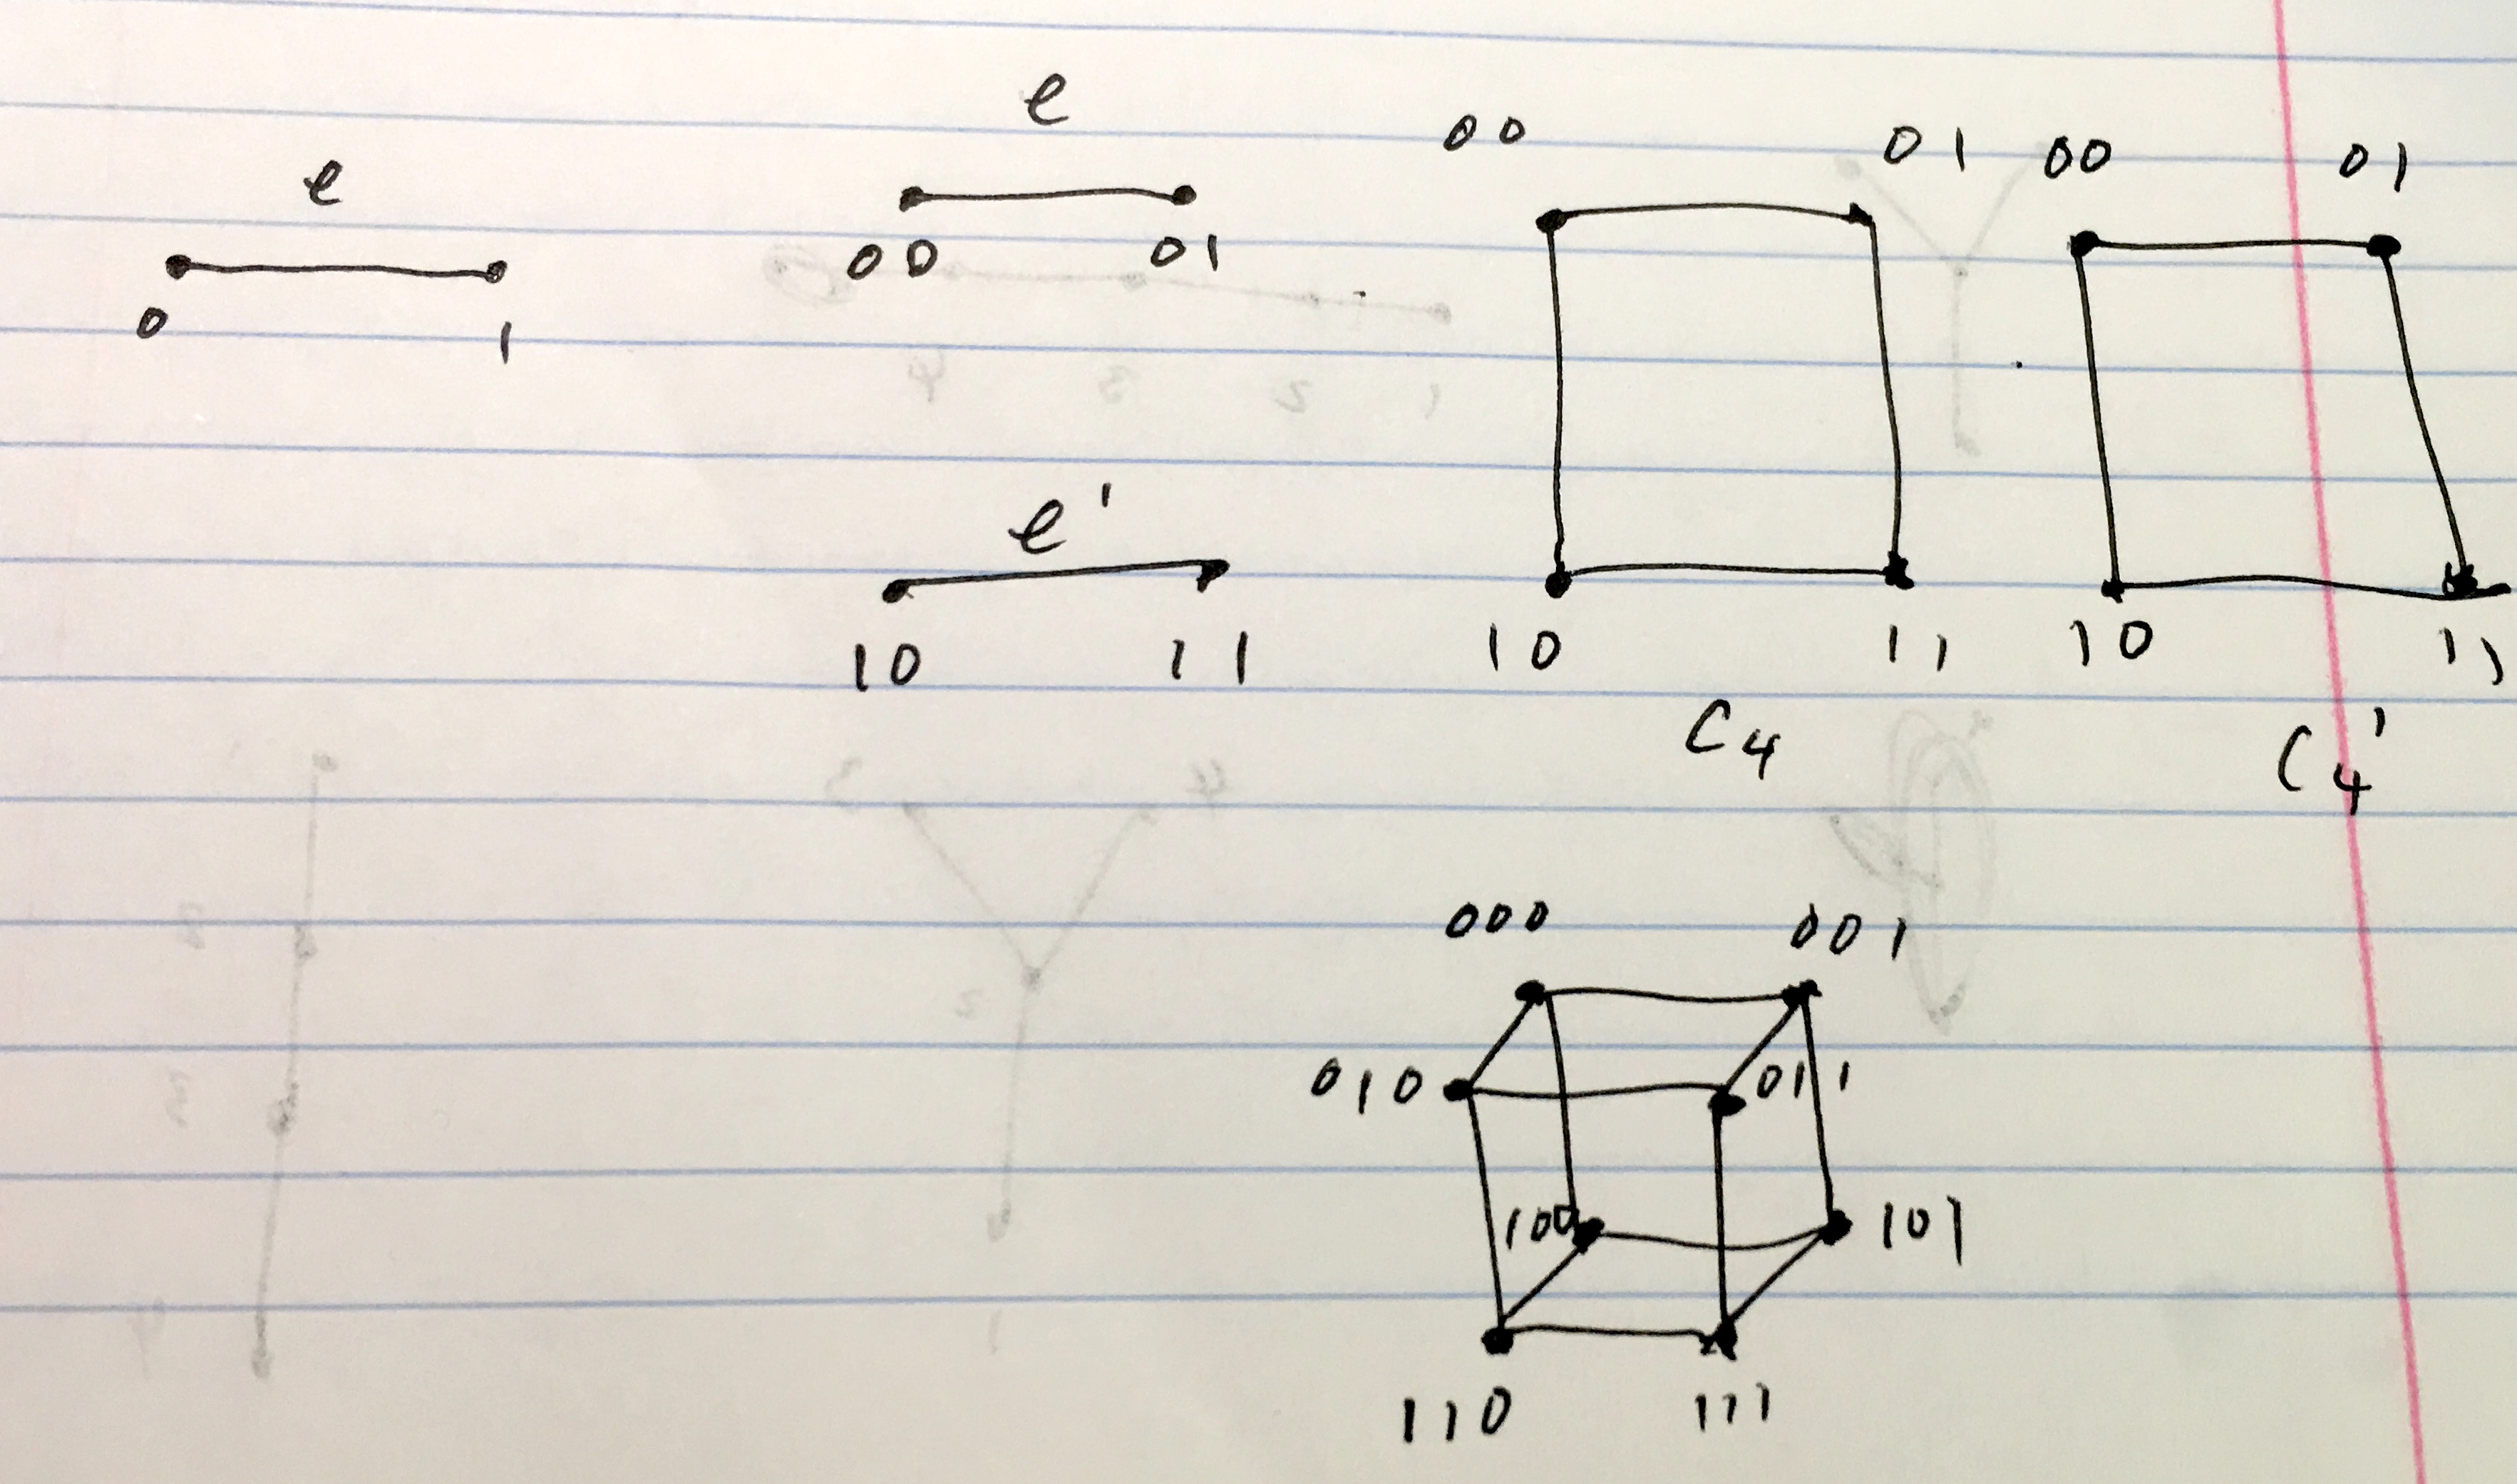 e
0 1
e
00 01
e'
10 11
00 01
10 11
C4
00 01
10 11
C4'
000 001
010 011
100 101
110 111